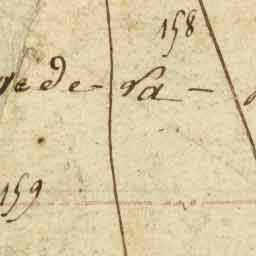 158
vede-va-
159